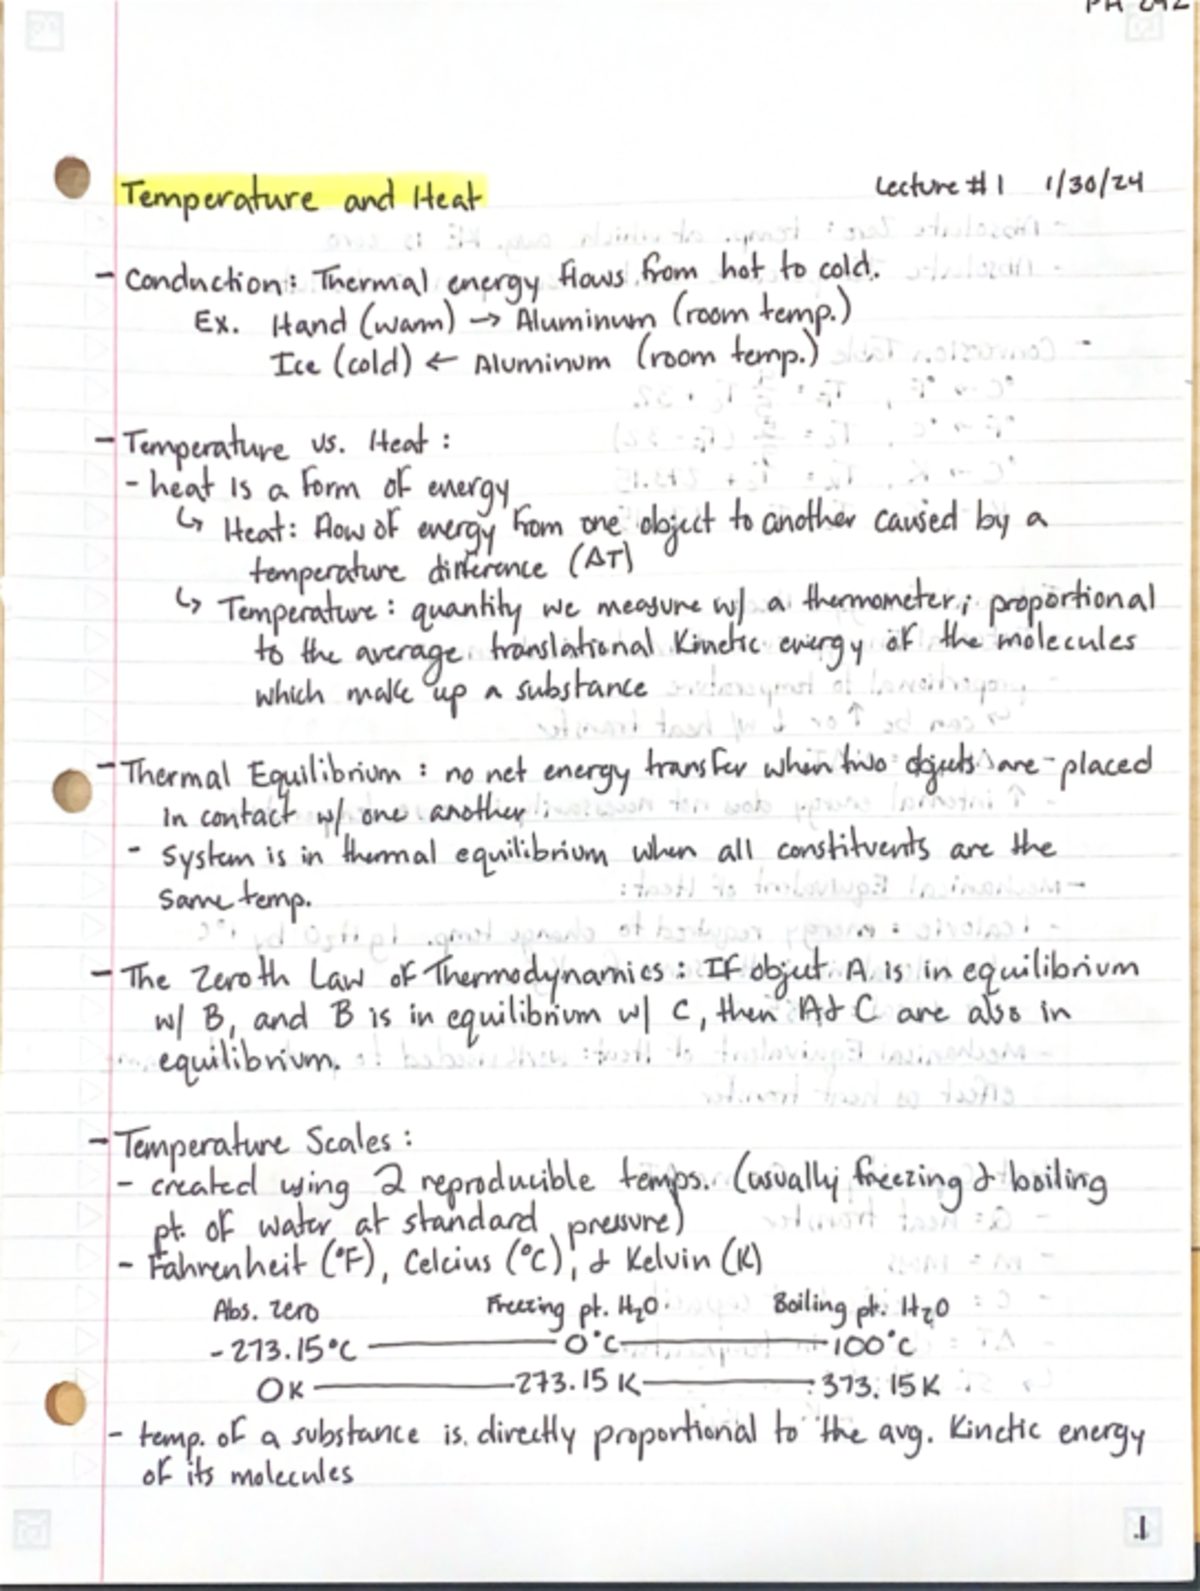 Temperature and Heat
Lecture #1 1/30/24
- Conduction: Thermal energy flows from hot to cold.
Ex. Hand (warm) → Aluminum (room temp.)
Ice (cold) ← Aluminum (room temp.)
- Temperature vs. Heat:
- heat is a form of energy
↳ Heat: flow of energy from one object to another caused by a
temperature difference (ΔT)
↳ Temperature: quantity we measure w/ a thermometer; proportional
to the average translational Kinetic energy of the molecules
which make up a substance
- Thermal Equilibrium: no net energy transfer when two objects are placed
in contact w/ one another.
- System is in thermal equilibrium when all constituents are the
same temp.
- The Zeroth Law of Thermodynamics: If object A is in equilibrium
w/ B, and B is in equilibrium w/ C, then A & C are also in
equilibrium.
- Temperature Scales:
- created using 2 reproducible temps. (usually freezing & boiling
pt. of water at standard pressure)
- Fahrenheit (°F), Celcius (°C), & Kelvin (K)
Abs. zero Freezing pt. H₂O Boiling pt. H₂O
-273.15°C 0°C 100°C
0K 273.15K 373.15K
- temp. of a substance is directly proportional to the avg. Kinetic energy
of its molecules
1